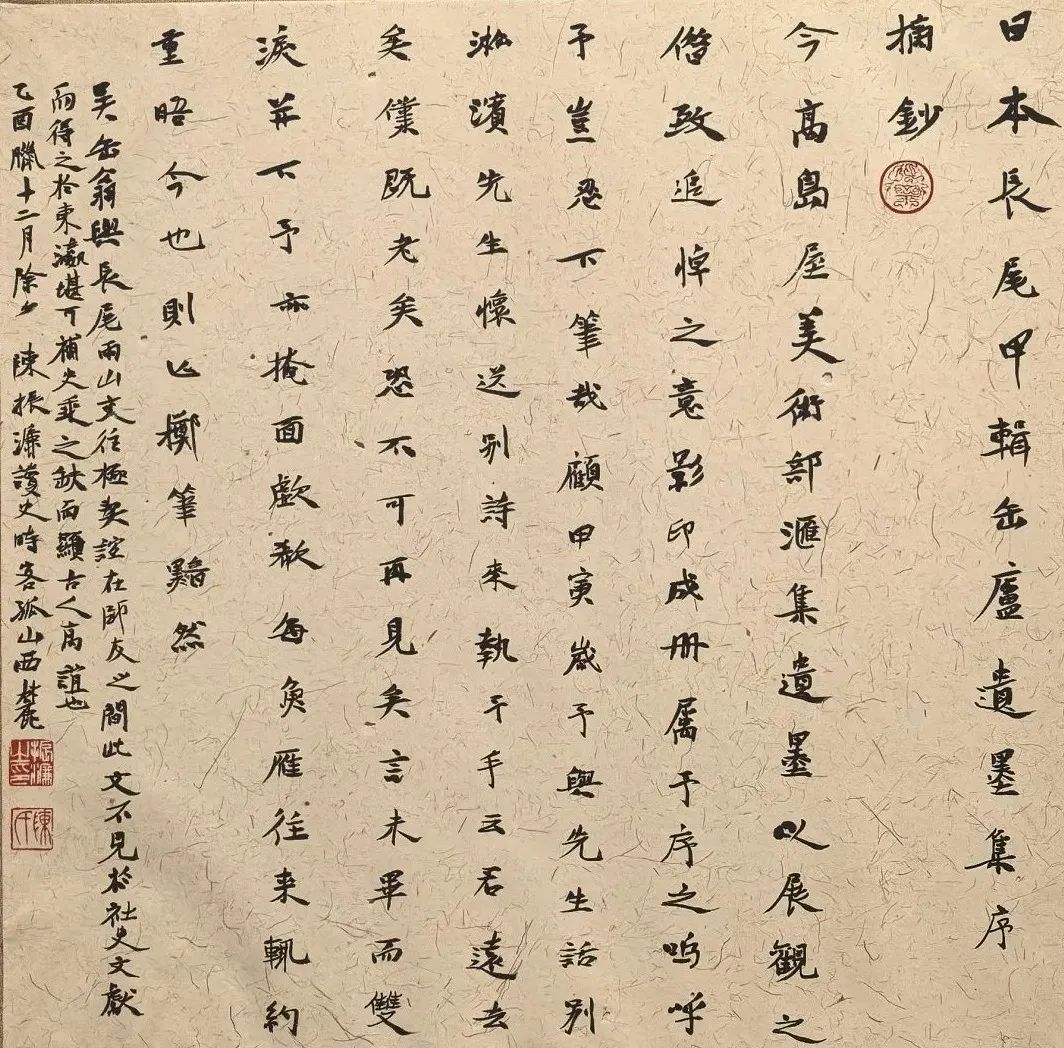 日本長尾甲輯缶廬遺墨集序
摘鈔
今高島屋美術部滙集遺墨以展觀之
僭致追悼之意影印成册属予序之嗚呼
予豈忍下筆哉顧甲寅歲予與先生話别
淞濱先生懷送别詩來執予手云君遠去
矣僕既老矣恐不可再見矣言未畢而雙
淚并下予亦掩面歔欷每魚雁往来輒約
重晤今也則亡擲筆黯然
吴缶翁與長尾雨山交往極契誼在師友之間此文不見於社史文獻
而得之於東瀛堪可補史乘之缺而顯古人高誼也
乙酉臘十二月除夕陳振濂護史時客孤山西麓